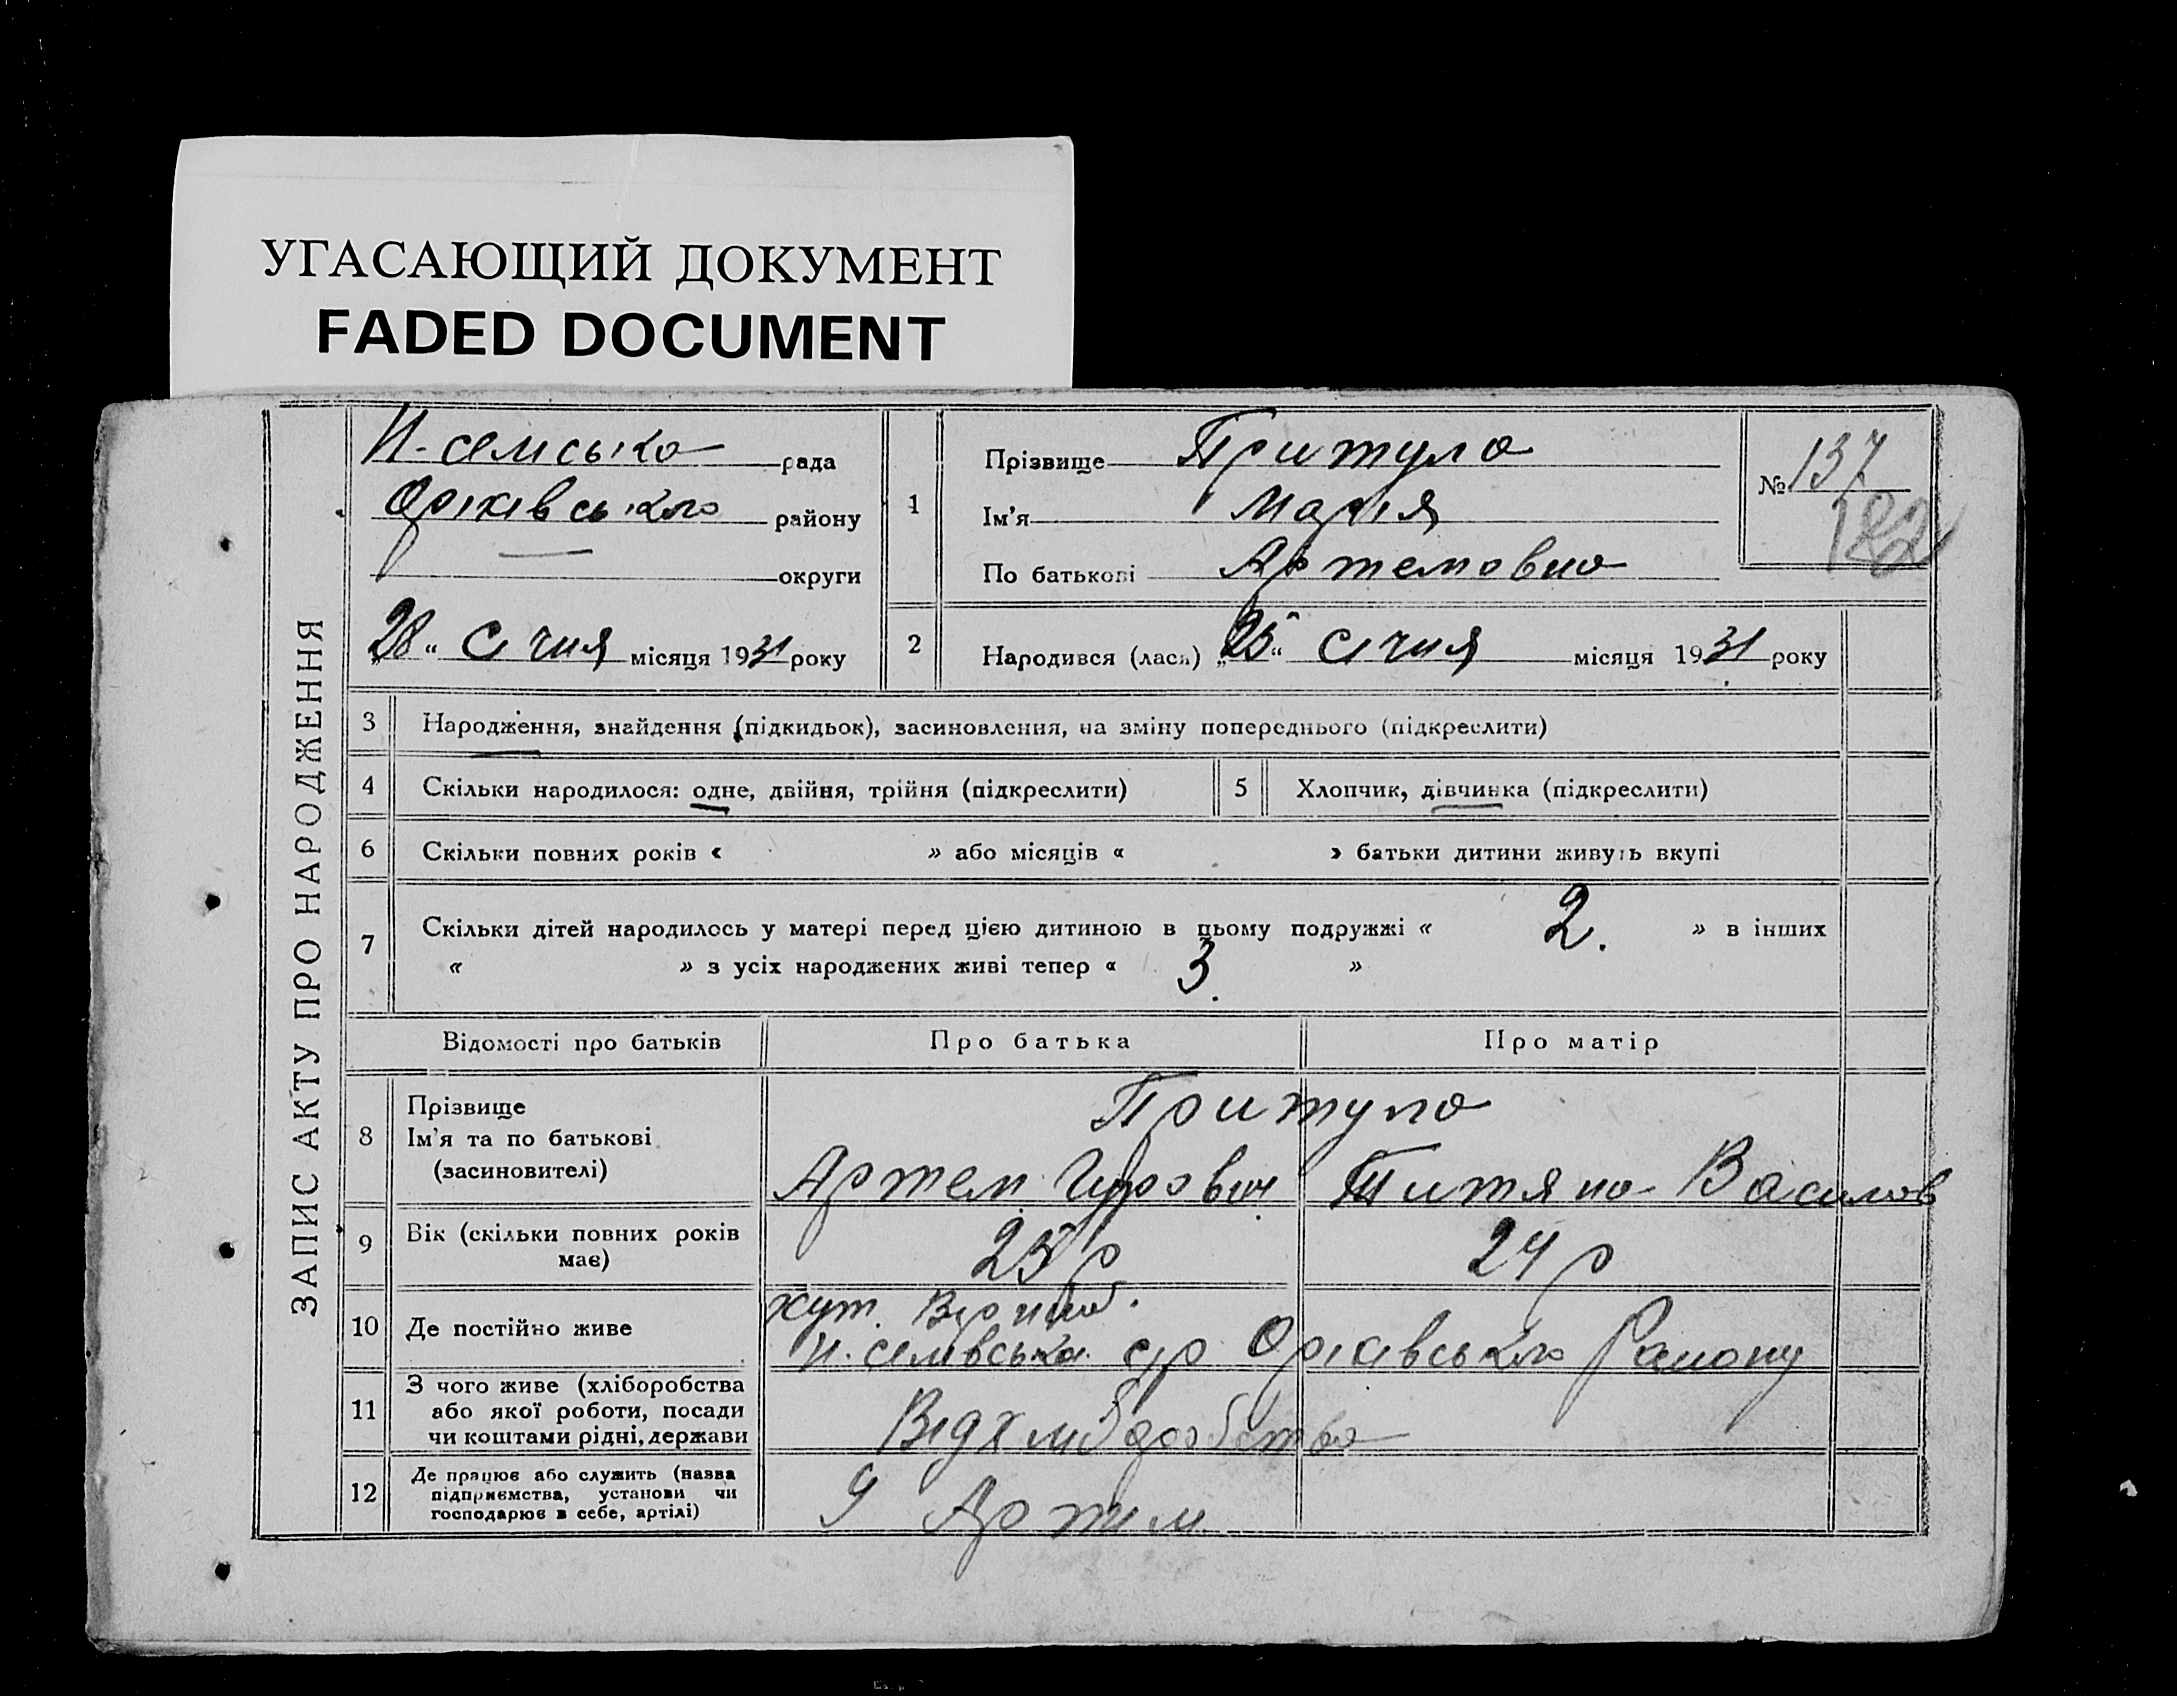 УГАСАЮЩИЙ ДОКУМЕНТ
FADED DOCUMENT
ЗАПИС АКТУ ПРО НАРОДЖЕННЯ
рада
району
округи
"28" Січня місяця 1931 року
1
Прізвище Притула
Ім'я Марія
По батькові Артемовна
№ 137
182
2
Народився (лася) "25" Січня місяця 1931 року
3 Народження, знайдення (підкидьок), засиновлення, на зміну попереднього (підкреслити)
4 Скільки народилося: одне, двійня, трійня (підкреслити)
5 Хлопчик, дівчинка (підкреслити)
6 Скільки повних років « » або місяців « » батьки дитини живуть вкупі
7 Скільки дітей народилось у матері перед цією дитиною в цьому подружжі « 2. » в інших
« » з усіх народжених живі тепер « 3. »
Відомості про батьків Про батька Про матір
8 Прізвище
Ім'я та по батькові
(засиновителі)
Притула
Артем Гурович Титяна Василов
9 Вік (скільки повних років
має)
25 р 24 р
10 Де постійно живе
хут.
с/р Району
11 З чого живе (хліборобства
або якої роботи, посади
чи коштами рідні, держави
Від хліборобства
12 Де працює або служить (назва
підприємства, установи чи
господарює в себе, артілі)
У Артіл